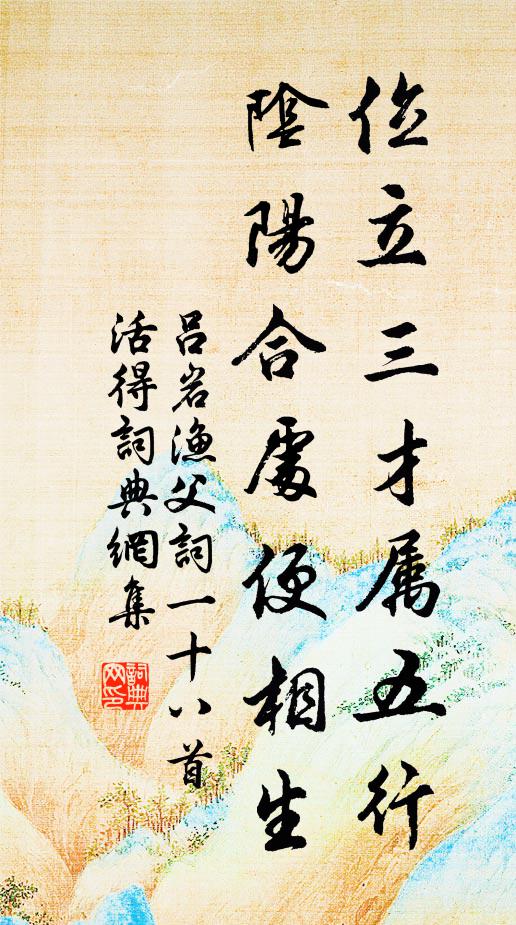 位立三才属五行
陰陽合處便相生
呂岩漁父詞一十八首
活得詞典網集
詞典
网印